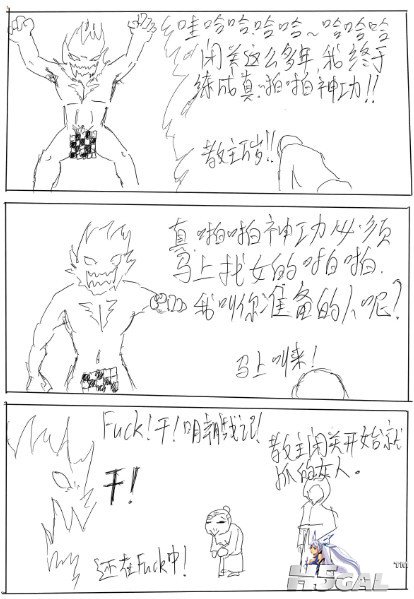 哇哈哈哈哈哈~哈哈哈
闭关这么多年,我终于
练成真·啪啪神功!!
教主万岁!!
真·啪啪神功必须
马上找女的啪啪.
我叫你准备的人呢?
马上叫来!
Fuck!干!明朝战记!
干!
还在Fuck中!
教主闭关开始就
抓的女人。
GAL